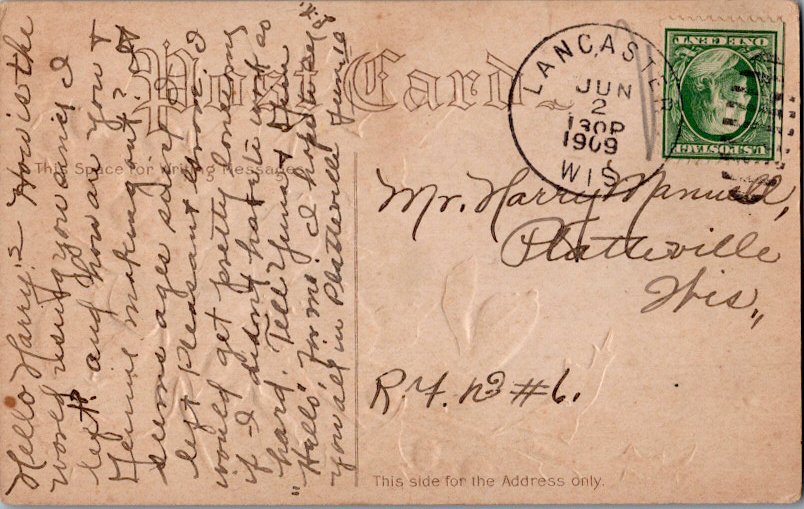 Post Card
This Space for Writing Message
Hello Harry:– How is the
world using you since I
left and how are you &
making out? It
seems ages since I
left Pleasant
would get pretty lonesome
if I didn't have to work so
hard. Tell &
"Hallo" for me. I hope to see
you all in Platteville
LANCASTER
JUN
2
130P
1909
WIS
ONE CENT
U.S. POSTAGE
Mr. Harry
Platteville
Wis.,
R. F. No #6.
This side for the Address only.